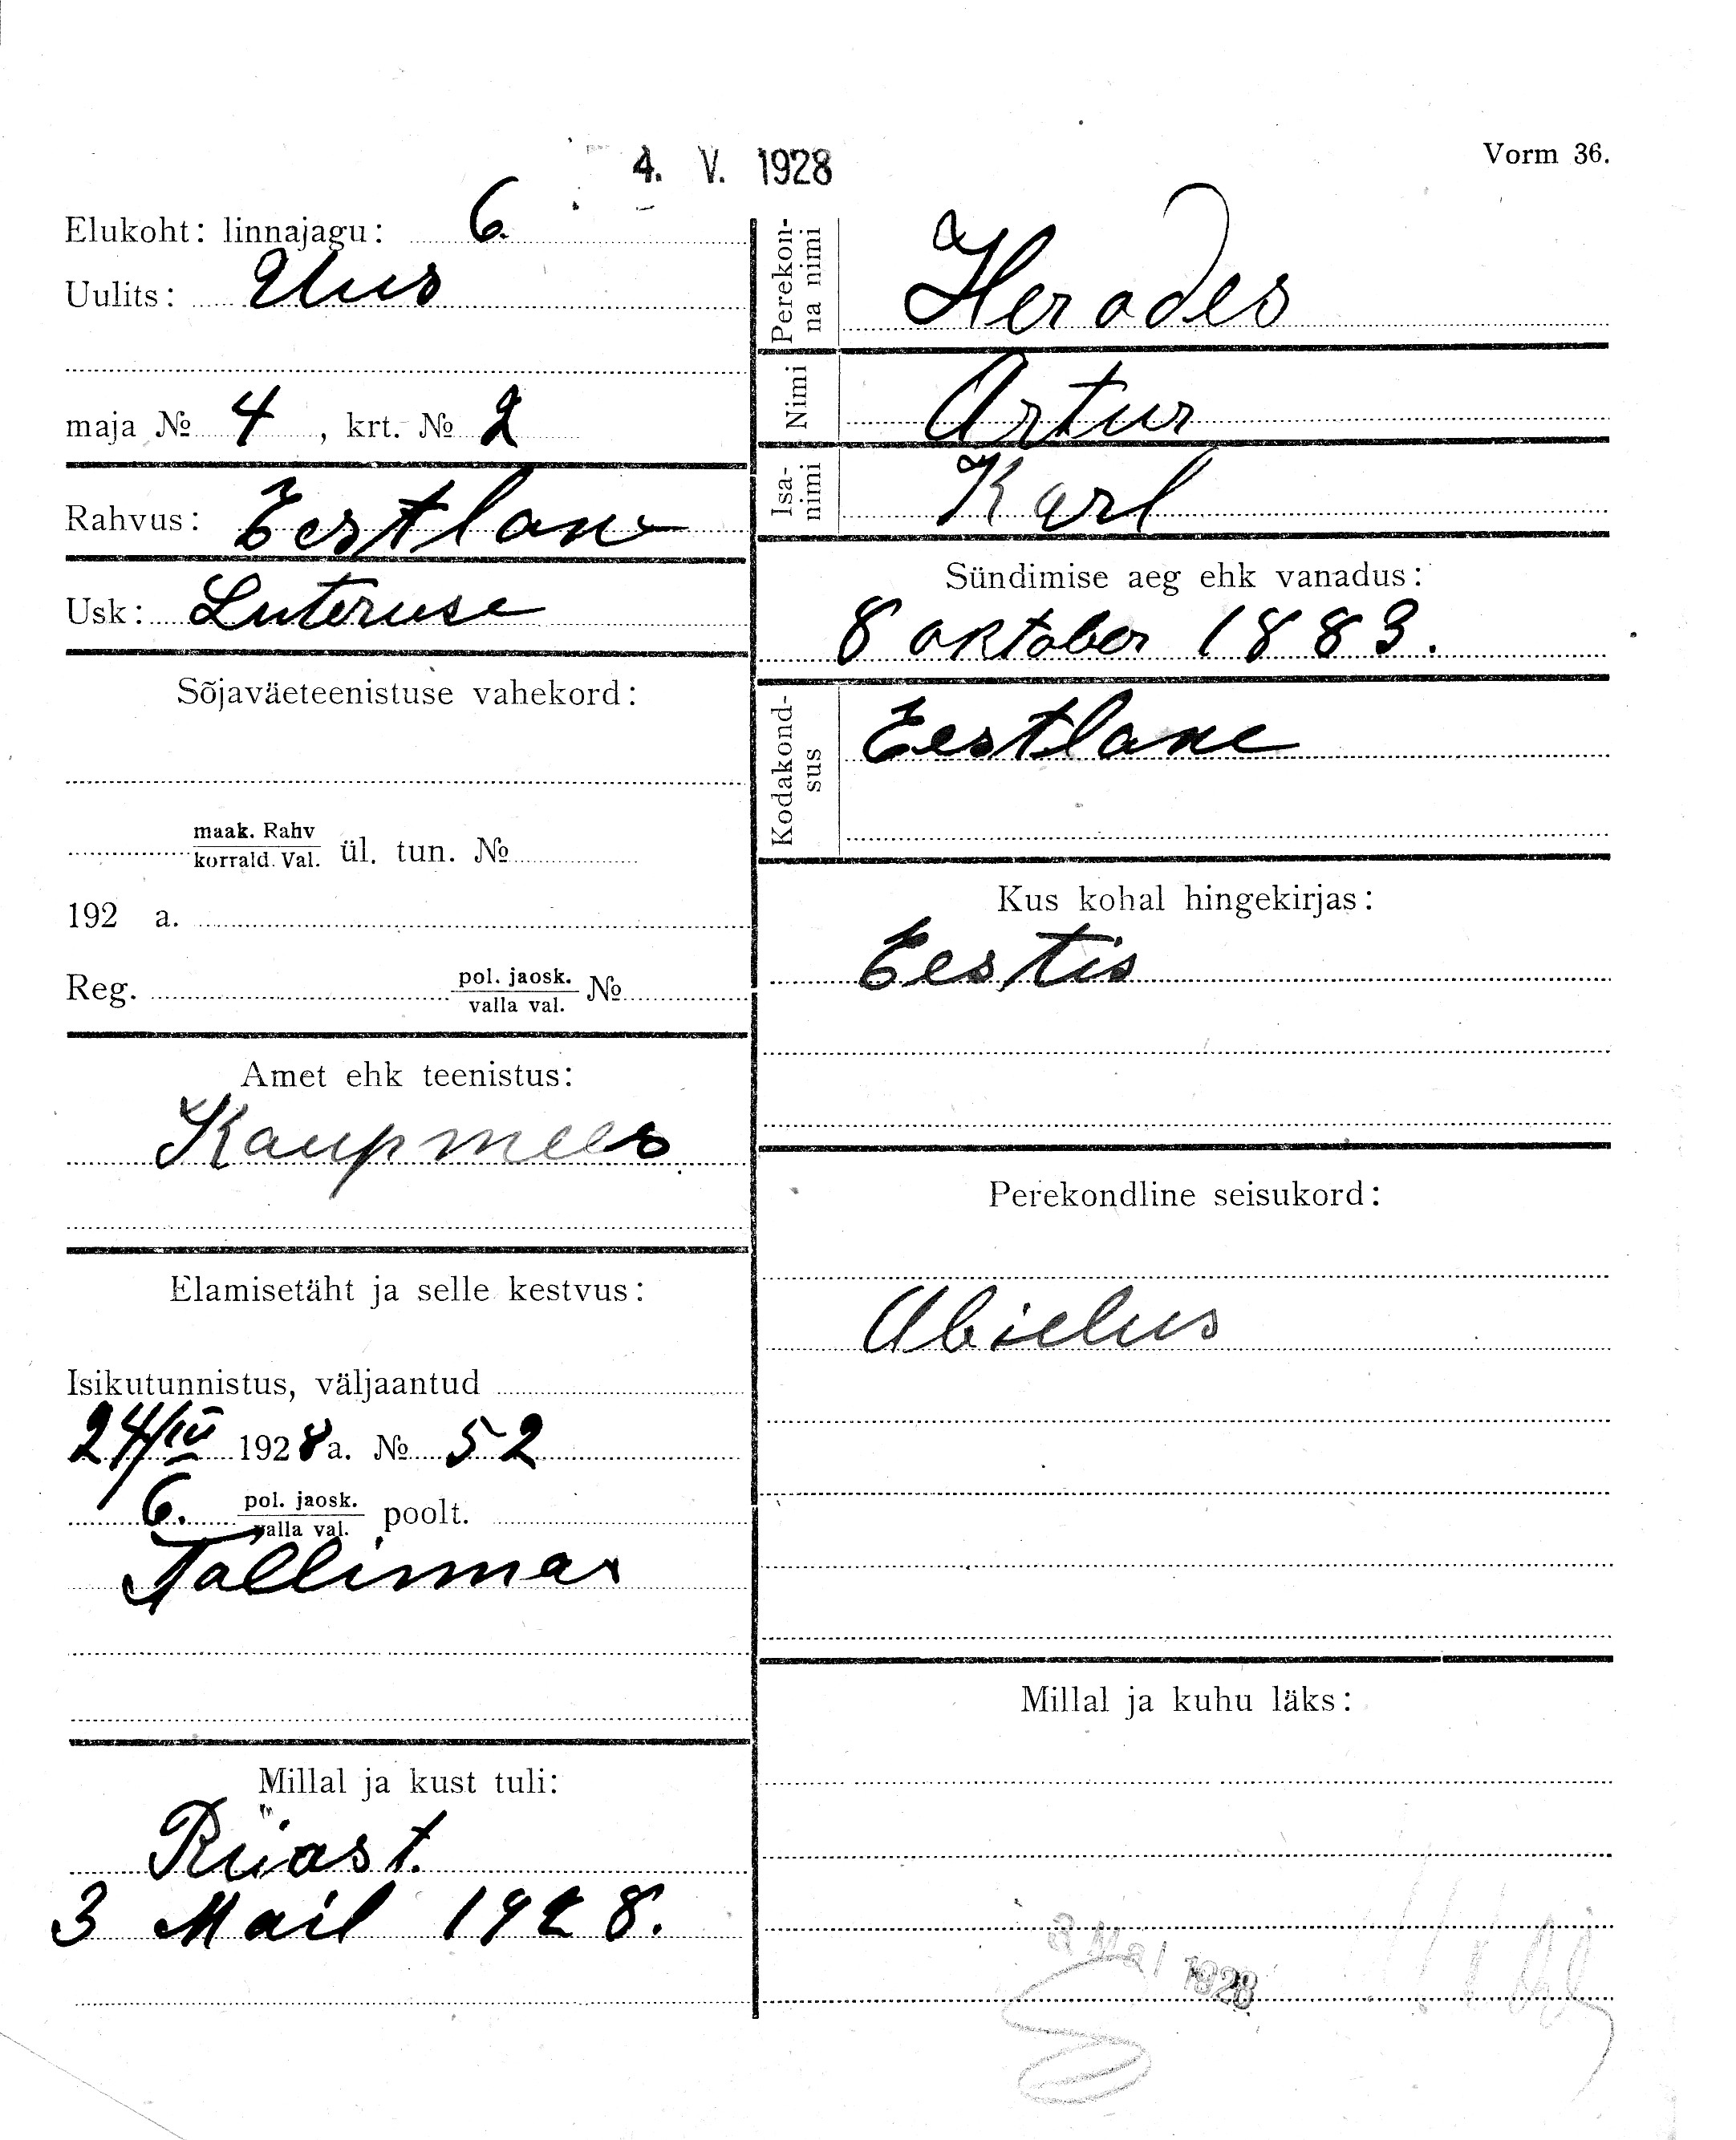 4. V. 1928
Vorm 36.
Elukoht: linnajagu: 6.
Uulits: Uus
maja № 4, krt. № 2
Rahvus: Eestlane
Usk: Luteruse
Sõjaväeteenistuse vahekord:
maak. Rahv
korrald. Val. ül. tun. №
192 a.
Reg. pol. jaosk.
valla val. №
Amet ehk teenistus:
Kaupmees
Elamisetäht ja selle kestvus:
Isikutunnistus, väljaantud
24/IV 1928 a. № 52
6. pol. jaosk.
valla val. poolt.
Tallinnas
Millal ja kust tuli:
Riiast.
3 Mail 1928.
Perekon-
na nimi
Herodes
Nimi Artur
Isa-
nimi
Karl
Sündimise aeg ehk vanadus:
8 oktober 1883.
Kodakond-
sus
Eestlane
Kus kohal hingekirjas:
Eestis
Perekondline seisukord:
Abielus
Millal ja kuhu läks:
Mai 1928